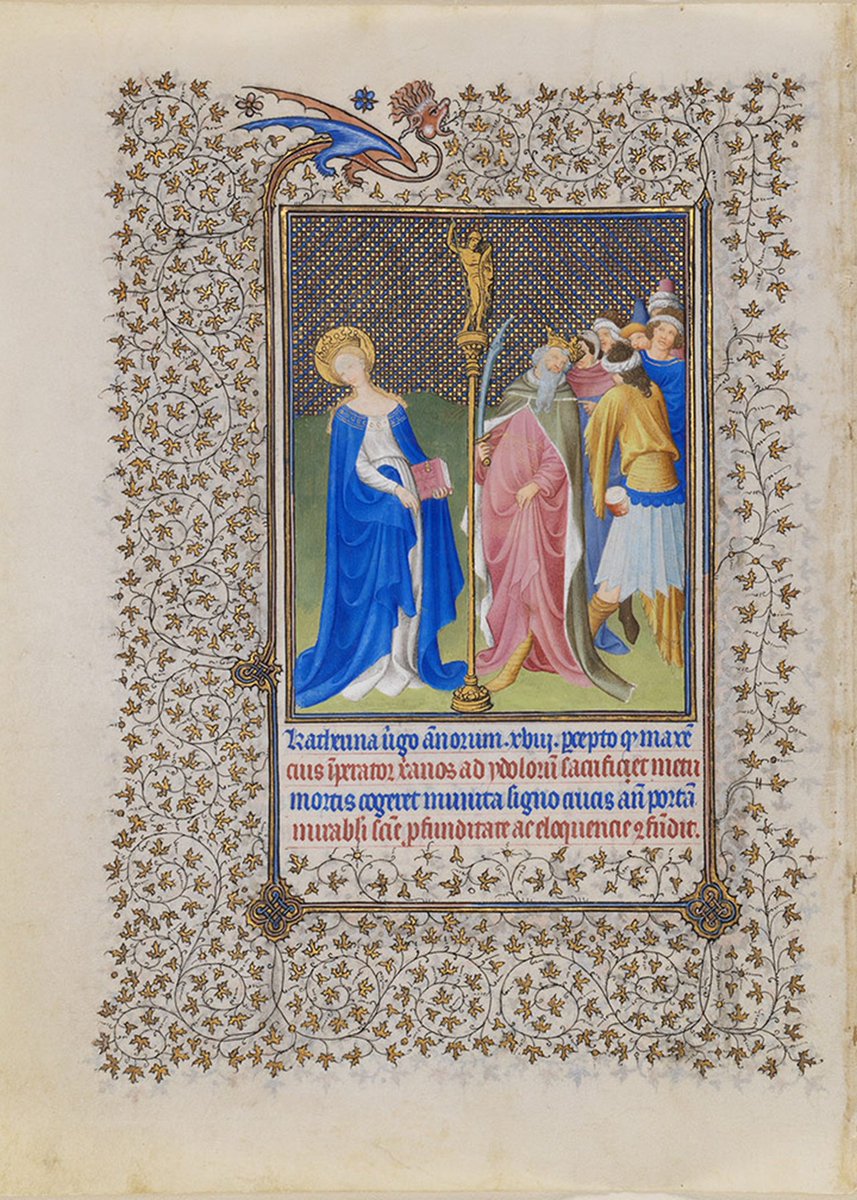 Katherina ṽgo ãnorum .xviij. p̱cepto qͥ maxẽ
cius ĩperator xanos ad ydolorũ sacrificiet metu
mortis cogeret munita signo crucis añ portã
mirabli sciẽ ꝓfunditate ac eloquencie ꝯfũdit.